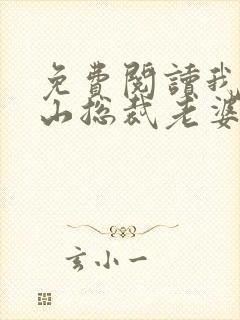 免費閱讀我
山總裁老婆
玄小一